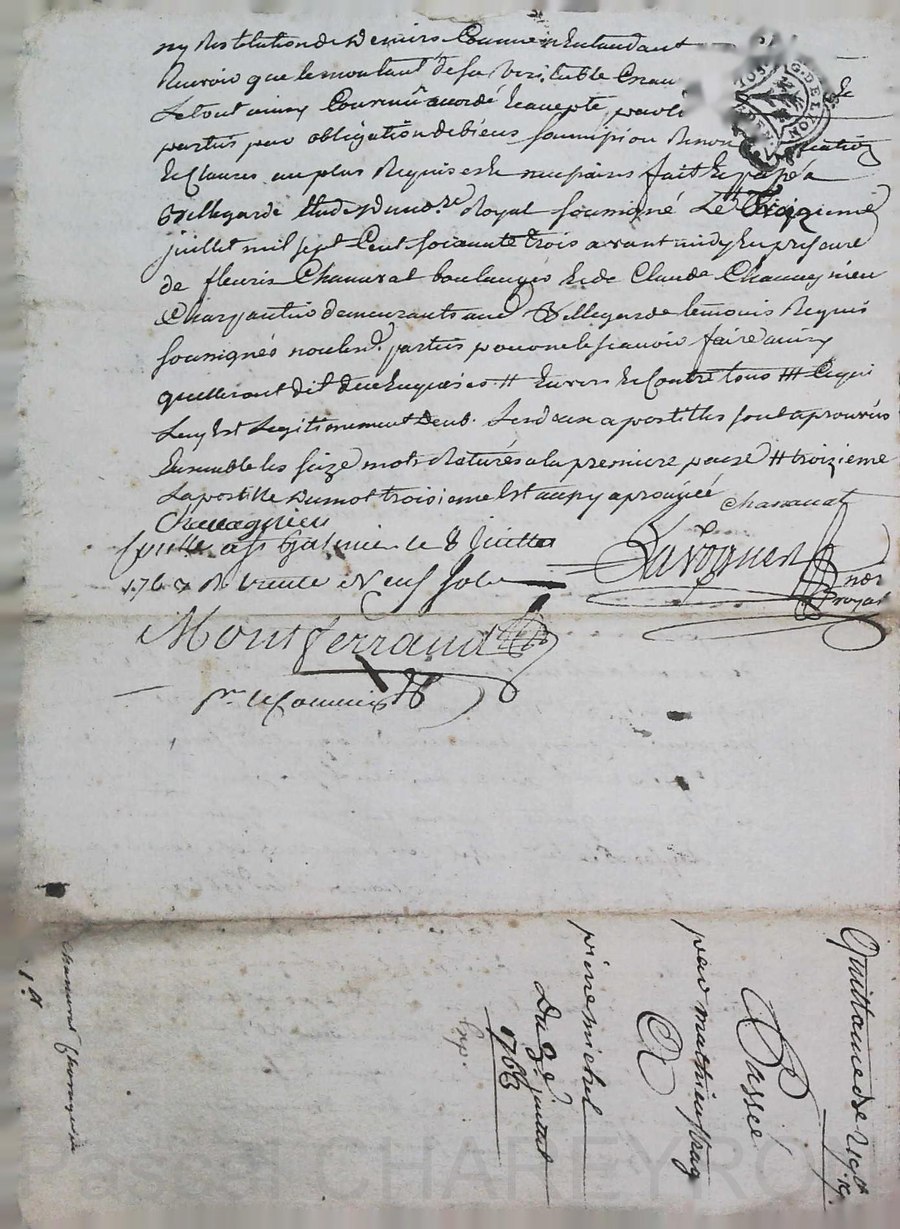 ny Restitution de deniers
Recevoir que le montant de sa veritable
Le tout ainsy Convenû acordé Et accepté par
parties par obligation de biens soumission Renon
Et Clauses au plus Requises et necessaires fait Et passé a
Bellegarde Etude du no.re Royal soussigné Le Troizieme
juillet mil sept Cent soixante trois avant midy En presence
de fleuris Chanavat boulanger Et de Claude Chavagnieu
Charpantier demeurants aud Bellegarde temoins Requis
soussignés non lesd. parties pour ne le sçavoir faire ainsy
quelles ont dit de ce Enquises # Envers Et Contre tous ## Ce qui
Luy Est Legitimement deub. Les deux apostilles sont aprouvés
Ensemble les seize mots Raturés a la premiere page # troizieme
La postille du mot troisieme Est aussy aprouvée
Chanavat
Chavagnieu
le 8 juillet
1763 R trente Neuf sols
nor
Royal
Montferrand
pr. le Commis
G. DE LYON
Quittance de
Passée
par mathieu
A
pierre michel
Du 3e juillet
1763
Exp.
1 ll
Pascal CHAREYRON